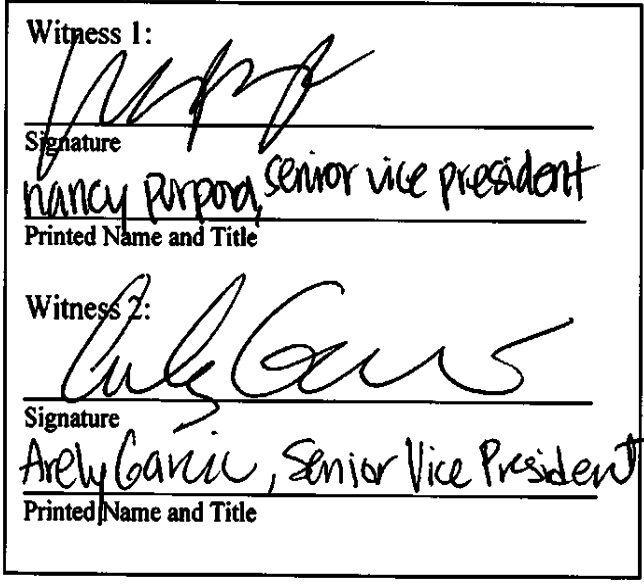 Witness 1:
Signature
nancy purpora, senior vice president
Printed Name and Title
Witness 2:
Signature
Arely Garcia, Senior Vice President
Printed Name and Title